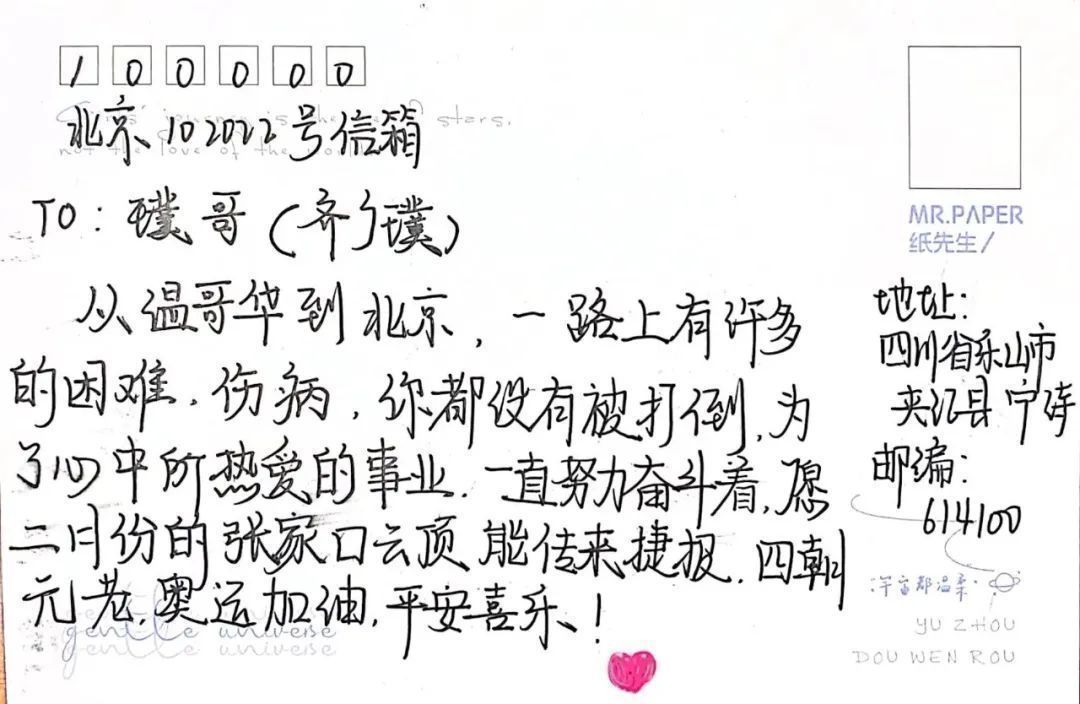 100000
北京102022号信箱
stars.
TO：璞哥（齐广璞）
从温哥华到北京，一路上有许多
的困难、伤病，你都没有被打倒，为
了心中所热爱的事业，一直努力奋斗着，愿
二月份的张家口云顶能传来捷报，四朝
元老，奥运加油，平安喜乐！
gentle universe
gentle universe
MR.PAPER
纸先生/
地址：
四川省乐山市
夹江县
邮编：
614100
宇宙都温柔
YU ZHOU
DOU WEN ROU